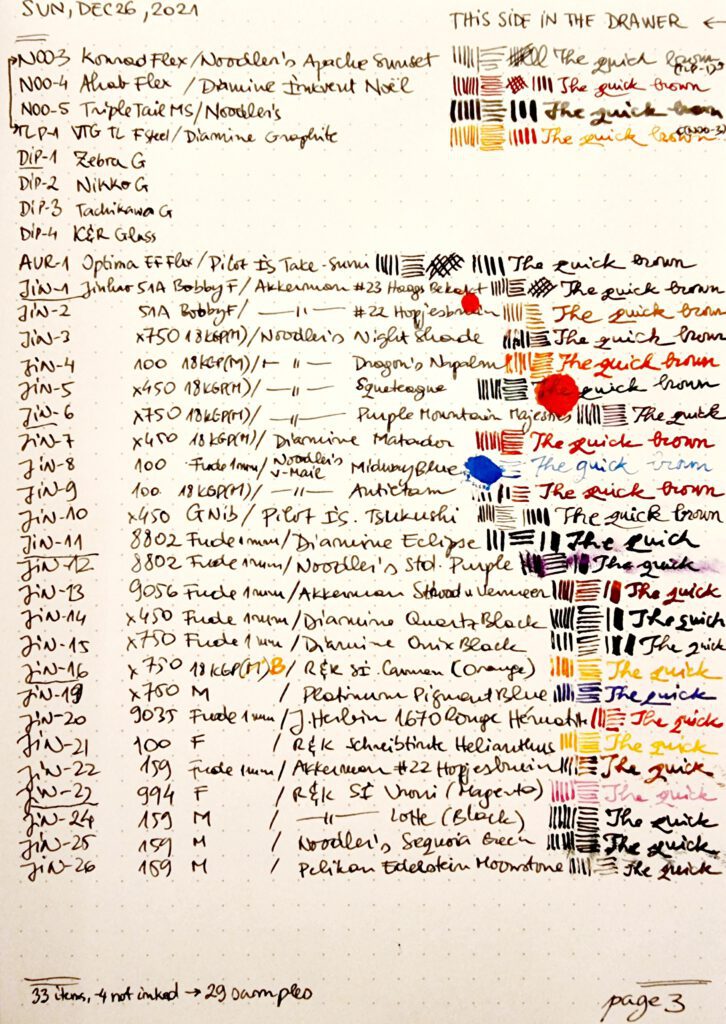 SUN, DEC 26, 2021
THIS SIDE IN THE DRAWER ←
NOO-3 Konrad Flex/Noodler's Apache Sunset The quick brown (TLP-1)
NOO-4 Ahab Flex / Diamine Inkvent Noël The quick brown
NOO-5 TripleTail MS/Noodler's The quick brown
TLP-1 VTG TL F steel/Diamine Graphite The quick brown (NOO-3)
DiP-1 Zebra G
DiP-2 Nikko G
DiP-3 Tachikawa G
DiP-4 K&R Glass
AUR-1 Optima EF Flex/Pilot IS Take-Sumi The quick brown
JiN-1 Jinhao 51A Bobby F/Akkerman #23 Haags The quick brown
JiN-2 51A Bobby F/ —"— #22 Hopjesbruin The quick brown
JiN-3 x750 18KGP(M)/Noodler's Night Shade The quick brown
JiN-4 100 18KGP(M)/ —"— Dragon's Napalm The quick brown
JiN-5 x450 18KGP(M)/ —"— Squeteague The quick brown
JiN-6 x750 18KGP(M)/ —"— Purple Mountain Majesties The quick
JiN-7 x450 18KGP(M)/Diamine Matador The quick brown
JiN-8 100 Fude 1mm/Noodler's V-Mail Midway Blue The quick brown
JiN-9 100 18KGP(M)/ —"— Antietam The quick brown
JiN-10 x450 G Nib/Pilot IS. Tsukushi The quick brown
JiN-11 8802 Fude 1mm/Diamine Eclipse The quick
JiN-12 8802 Fude 1mm/Noodler's Std. Purple The quick
JiN-13 9056 Fude 1mm/Akkerman Vermeer The quick
JiN-14 x450 Fude 1mm/Diamine Quartz Black The quick
JiN-15 x750 Fude 1mm/Diamine Onix Black The quick
JiN-16 x750 18KGP(M)B/R&K SI. Carmen (Orange) The quick
JiN-19 x750 M / Platinum Pigment Blue The quick
JiN-20 9035 Fude 1mm/J. Herbin 1670 Rouge Hématite The quick
JiN-21 100 F / R&K Schreibtinte Helianthus The quick
JiN-22 159 Fude 1mm/Akkerman #22 Hopjesbruin The quick
JiN-23 994 F / R&K SI Vroni (Magenta) The quick
JiN-24 159 M / —"— Lotte (Black) The quick
JiN-25 159 M / Noodler's Sequoia Green The quick
JiN-26 159 M / Pelikan Edelstein Moonstone The quick
33 items, -4 not inked → 29 samples
page 3